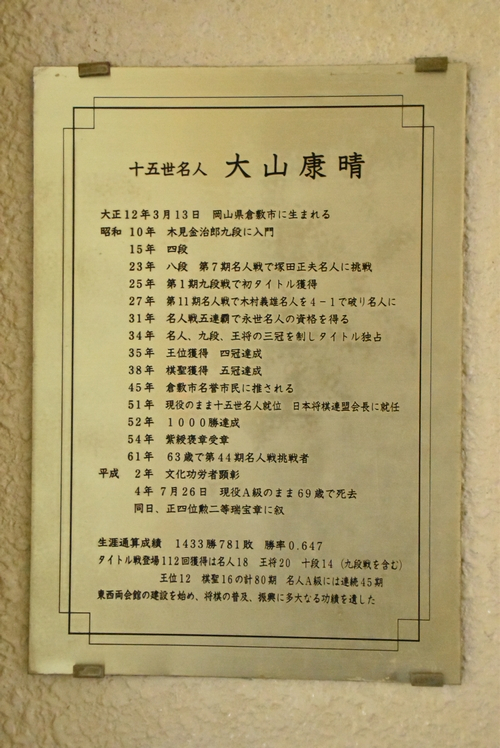 十五世名人 大山康晴
大正12年3月13日 岡山県倉敷市に生まれる
昭和 10年 木見金治郎九段に入門
15年 四段
23年 八段 第7期名人戦で塚田正夫名人に挑戦
25年 第1期九段戦で初タイトル獲得
27年 第11期名人戦で木村義雄名人を4-1で破り名人に
31年 名人戦五連覇で永世名人の資格を得る
34年 名人、九段、王将の三冠を制しタイトル独占
35年 王位獲得 四冠達成
38年 棋聖獲得 五冠達成
45年 倉敷市名誉市民に推される
51年 現役のまま十五世名人就位 日本将棋連盟会長に就任
52年 1000勝達成
54年 紫綬褒章受章
61年 63歳で第44期名人戦挑戦者
平成 2年 文化功労者顕彰
4年 7月26日 現役A級のまま69歳で死去
同日、正四位勲二等瑞宝章に叙
生涯通算成績 1433勝781敗 勝率0.647
タイトル戦登場112回獲得は名人18 王将20 十段14(九段戦を含む)
王位12 棋聖16の計80期 名人A級には連続45期
東西両会館の建設を始め、将棋の普及、振興に多大なる功績を遺した